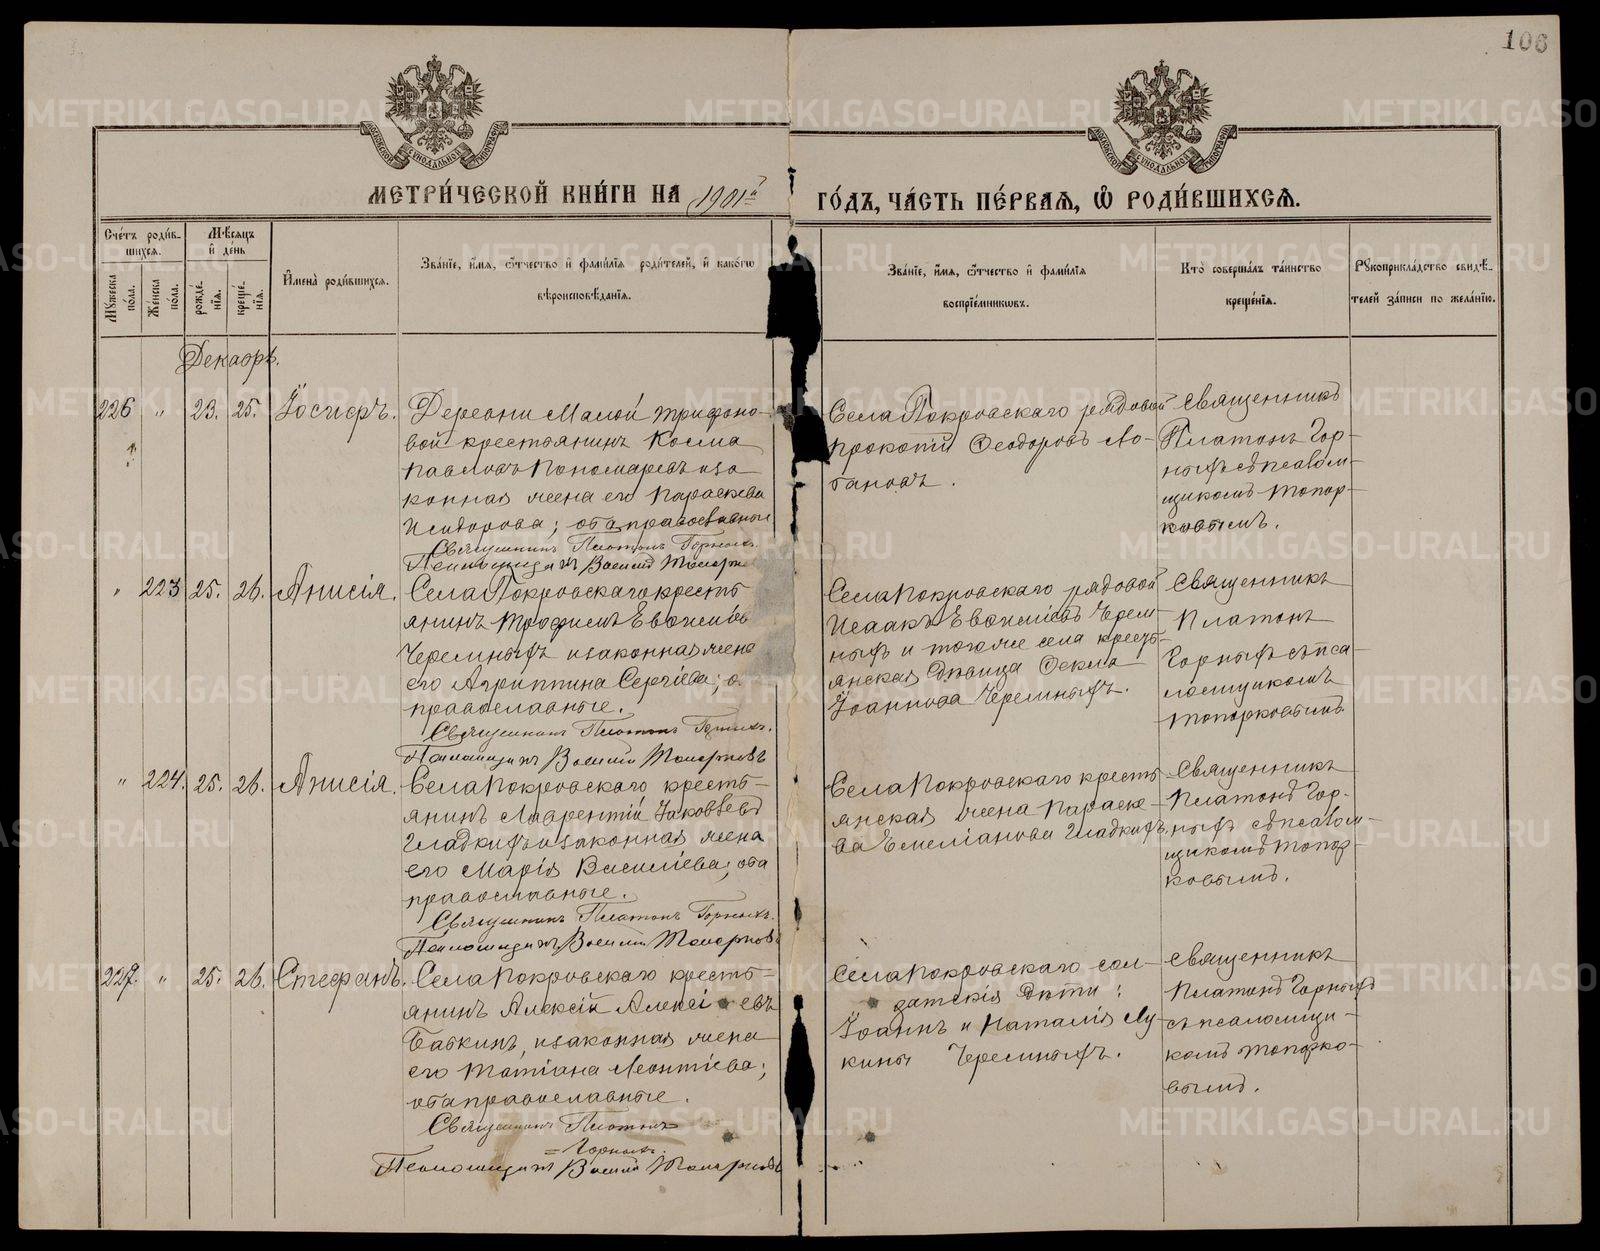 106
МОСКОВСКОЙ СѴНОДАЛЬНОЙ ТИПОГРАФІИ
МОСКОВСКОЙ СѴНОДАЛЬНОЙ ТИПОГРАФІИ
МЕТРИ́ЧЕСКОЙ КНИ́ГИ НА 1901й
ГО́ДЪ, ЧА́СТЬ ПЕ́РВАѦ, Ѡ РОДИ́ВШИХСѦ.
Сче́тъ роди́в-
шихсѧ.
Мѹжеска по́ла.
Же́нска по́ла.
Мѣ́сѧцъ
и҆ де́нь
рожде́-
нїѧ.
креще́-
нїѧ.
И҆мена̀ роди́вшихсѧ.
Зва́нїе, и҆́мѧ, ѻ҆́тчество и҆ фами́лїѧ роди́телей, и҆ како́гѡ
вѣроисповѣ́данїѧ.
Зва́нїе, и҆́мѧ, ѻ҆́тчество и҆ фами́лїѧ
воспрїе́мникѡвъ.
Кто̀ соверша́лъ та́инство
креще́нїѧ.
Рѹкоприкла́дство свидѣ́-
телей за́писи по жела́нїю.
Декабрь.
226 " 23. 25. Іосифъ.
Деревни Малой Трифоно-
вой крестьянинъ Косма
Павловъ Пономаревъ и за
конная жена его Параскева
Исидорова; оба православные
Священникъ Платонъ Горныхъ.
Псаломщикъ Василій Топорк
Села Покровскаго рядовой
Прокопій Ѳеодоровъ Ло-
бановъ.
Священникъ
Платонъ Гор-
ныхъ съ псалом-
щикомъ Топор-
ковымъ.
" 223 25. 26. Анисія.
Села Покровскаго кресть
янинъ Трофимъ Евѳимiев
Черемныхъ и законная жена
его Агриппина Сергіева; о
православные.
Священникъ Платонъ Горныхъ.
Псаломщикъ Василій Топорковъ
Села Покровскаго рядовой
Исаакъ Евѳиміевъ Черем-
ныхъ и того же села кресть-
янская дѣвица Ѳекла
Іоаннова Черемныхъ.
Священникъ
Платонъ
Горныхъ съ пса-
ломщикомъ
Топорковымъ.
" 224. 25. 26. Анисія.
Села Покровскаго кресть-
янинъ Лаврентій Іаковлевъ
Гладкихъ и законная жена
его Марія Василіева; оба
православные.
Священникъ Платонъ Горныхъ.
Псаломщикъ Василій Топорковъ
Села Покровскаго кресть
янская жена Параске-
ва Емеліанова Гладкихъ.
Священникъ
Платонъ Гор-
ныхъ съ псалом-
щикомъ Топор-
ковымъ.
227. " 25. 26. Стефанъ.
Села Покровскаго кресть=
янинъ Алексій Алексіевъ
Бабкинъ, и законная жена
его Татіана Леонтіева;
оба православные.
Священникъ Платонъ
= Горныхъ.
Псаломщикъ Василій Топорковъ
Села Покровскаго сол-
датскія дѣти:
Іоаннъ и Наталія Лу-
кины Черемныхъ.
Священникъ
Платонъ Горныхъ
съ псаломщи-
комъ Топорко-
вымъ.
METRIKI.GASO-URAL.RU